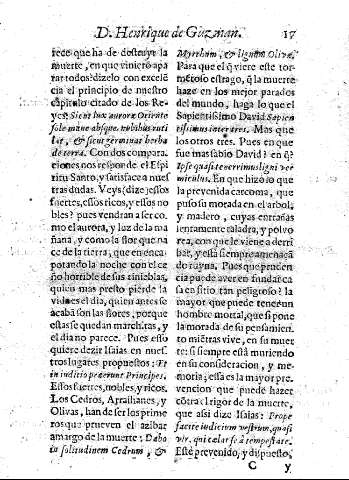 D. Henrique de Guzman. 17
rece que ha de destruyr la
muerte, en que vinieró a pa-
rar todos? dizelo con excelē-
cia el principio de nuestro
capitulo citado de los Re-
yes: Sicut lux auroræ Oriente
sole mane absque nubibus ruti
lat, & sicut germinat herba
de terra. Con dos compara-
ciones nos responde el Espi
ritu Santo, y satisface a nues
tras dudas. Veys (dize) essos
fuertes, essos ricos, y essos no
bles? pues vendran a ser co-
mo el aurora, y luz de la ma
ñana, y como la flor que na
ce de la tierra, que en enca-
potando la noche con el ce
ño horrible de sus tinieblas,
quien mas presto pierde la
vida es el dia, quien antes se
acabã son las flores, porque
estas se quedan marchitas, y
el dia no parece. Pues esso
quiere dezir Isaias en nues-
tros lugares propuestos: Et
in inditio præerunt Principes.
Essos fuertes, nobles, y ricos.
Los Cedros, Arraihanes, y
Olivas, han de ser los prime
ros que prueven el azibar
amargo de la muerte: Dabo
in solitudinem Cedrum, &
Myrthum, & lignum Olivæ.
Para que el q̃ viere este tor-
mētoso estrago, q̃ la muerte
haze en los mejor parados
del mundo, haga lo que el
Sapientissimo David Sapien
tissimus inter tres. Mas que
los otros tres. Pues en que
fue mas sabio David? en q̃?
Ipse quasi tenerrimus ligni ver
miculus. En que hizo lo que
la prevenida carcoma, que
puso su morada en el arbol,
y madero, cuyas entrañas
lentamente taladra, y polvo
rea, con que le viene a derri
bar, y està siempre amenaçã
do ruyna. Pues que pruden
cia puede aver en fundar ca
sa en sitio tan peligroso? la
mayor que puede tener un
hombre mortal, que si pone
la morada de su pensamien
to miẽtras vive, en su muer
te: si siempre està muriendo
en su consideracion, y me-
moria; essa es la mayor pre-
vencion que puede hazer
cótra el rigor de la muerte,
que assi dize Isaias: Prope
facite iudicium vestrum, quasi
vir, qui cælat se à tempestate.
Este prevenido, y dispuesto,
C y